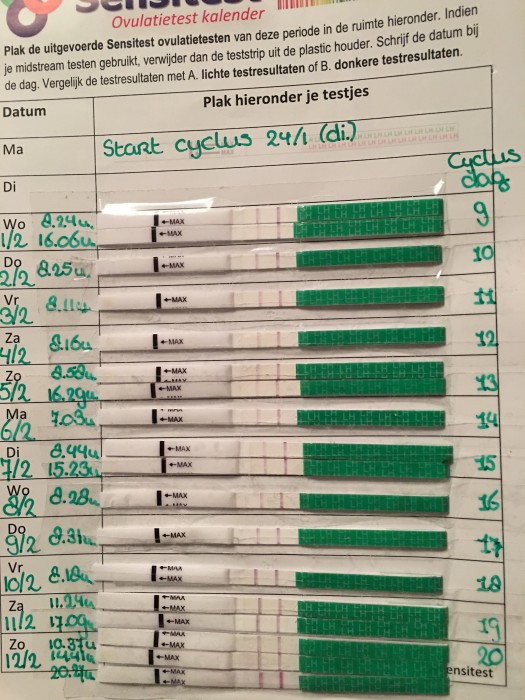 Sensitest
Ovulatietest kalender
Plak de uitgevoerde Sensitest ovulatietesten van deze periode in de ruimte hieronder. Indien
je midstream testen gebruikt, verwijder dan de teststrip uit de plastic houder. Schrijf de datum bij
de dag. Vergelijk de testresultaten met A. lichte testresultaten of B. donkere testresultaten.
Datum
Plak hieronder je testjes
Ma
Start cyclus 24/1 (di.)
Cyclus
dag
Di
Wo 8.24u 9
1/2 16.06u
←MAX
←MAX
Do 10
2/2 8.25u
←MAX
Vr 11
3/2 8.11u
←MAX
Za 12
4/2 8.16u
←MAX
Zo 8.58u 13
5/2 16.29u
←MAX
←MAX
Ma 14
6/2 7.03u
←MAX
Di 8.44u 15
7/2 15.23u
←MAX
←MAX
Wo 16
8/2 8.28u
←MAX
Do 17
9/2 8.31u
←MAX
Vr 18
10/2 8.18u
←MAX
←MAX
Za 11.24u 19
11/2 17.09u
←MAX
←MAX
←MAX
Zo 10.37u 20
12/2
20.27u
←MAX
←MAX
←MAX
←MAX
ensitest